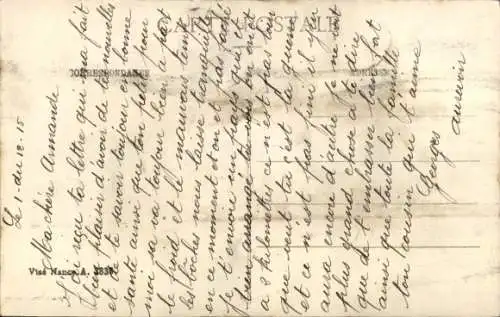 CARTE POSTALE
CORRESPONDANCE
ADRESSE
Le 1. du 12-15
Ma chère Armande
J'ai reçu ta lettre qui ma fait
bien plaisir d'avoir de tes nouvelles
et de te savoir toujour en bonne
santé ainsi que ton père pour
moi sa va toujour bien a part
le froid et le mauvais temps
les boches nous laisse tranquille
en ce moment et on et pas faché
je t'envoie un pays qui et
bien arrangé tu dois bien
a 2 kilomètres ce n'est pas pour
que veut tu c'est la guerre
et ce n'est pas fini il y en
aura encore d'autre je ne voit
plus grand chose a te dire
que de t'embrasser bien fort
ainsi que toute la famille
ton cousin qui t'aime
Georges
aurevoir
Visé Nancy A. 233